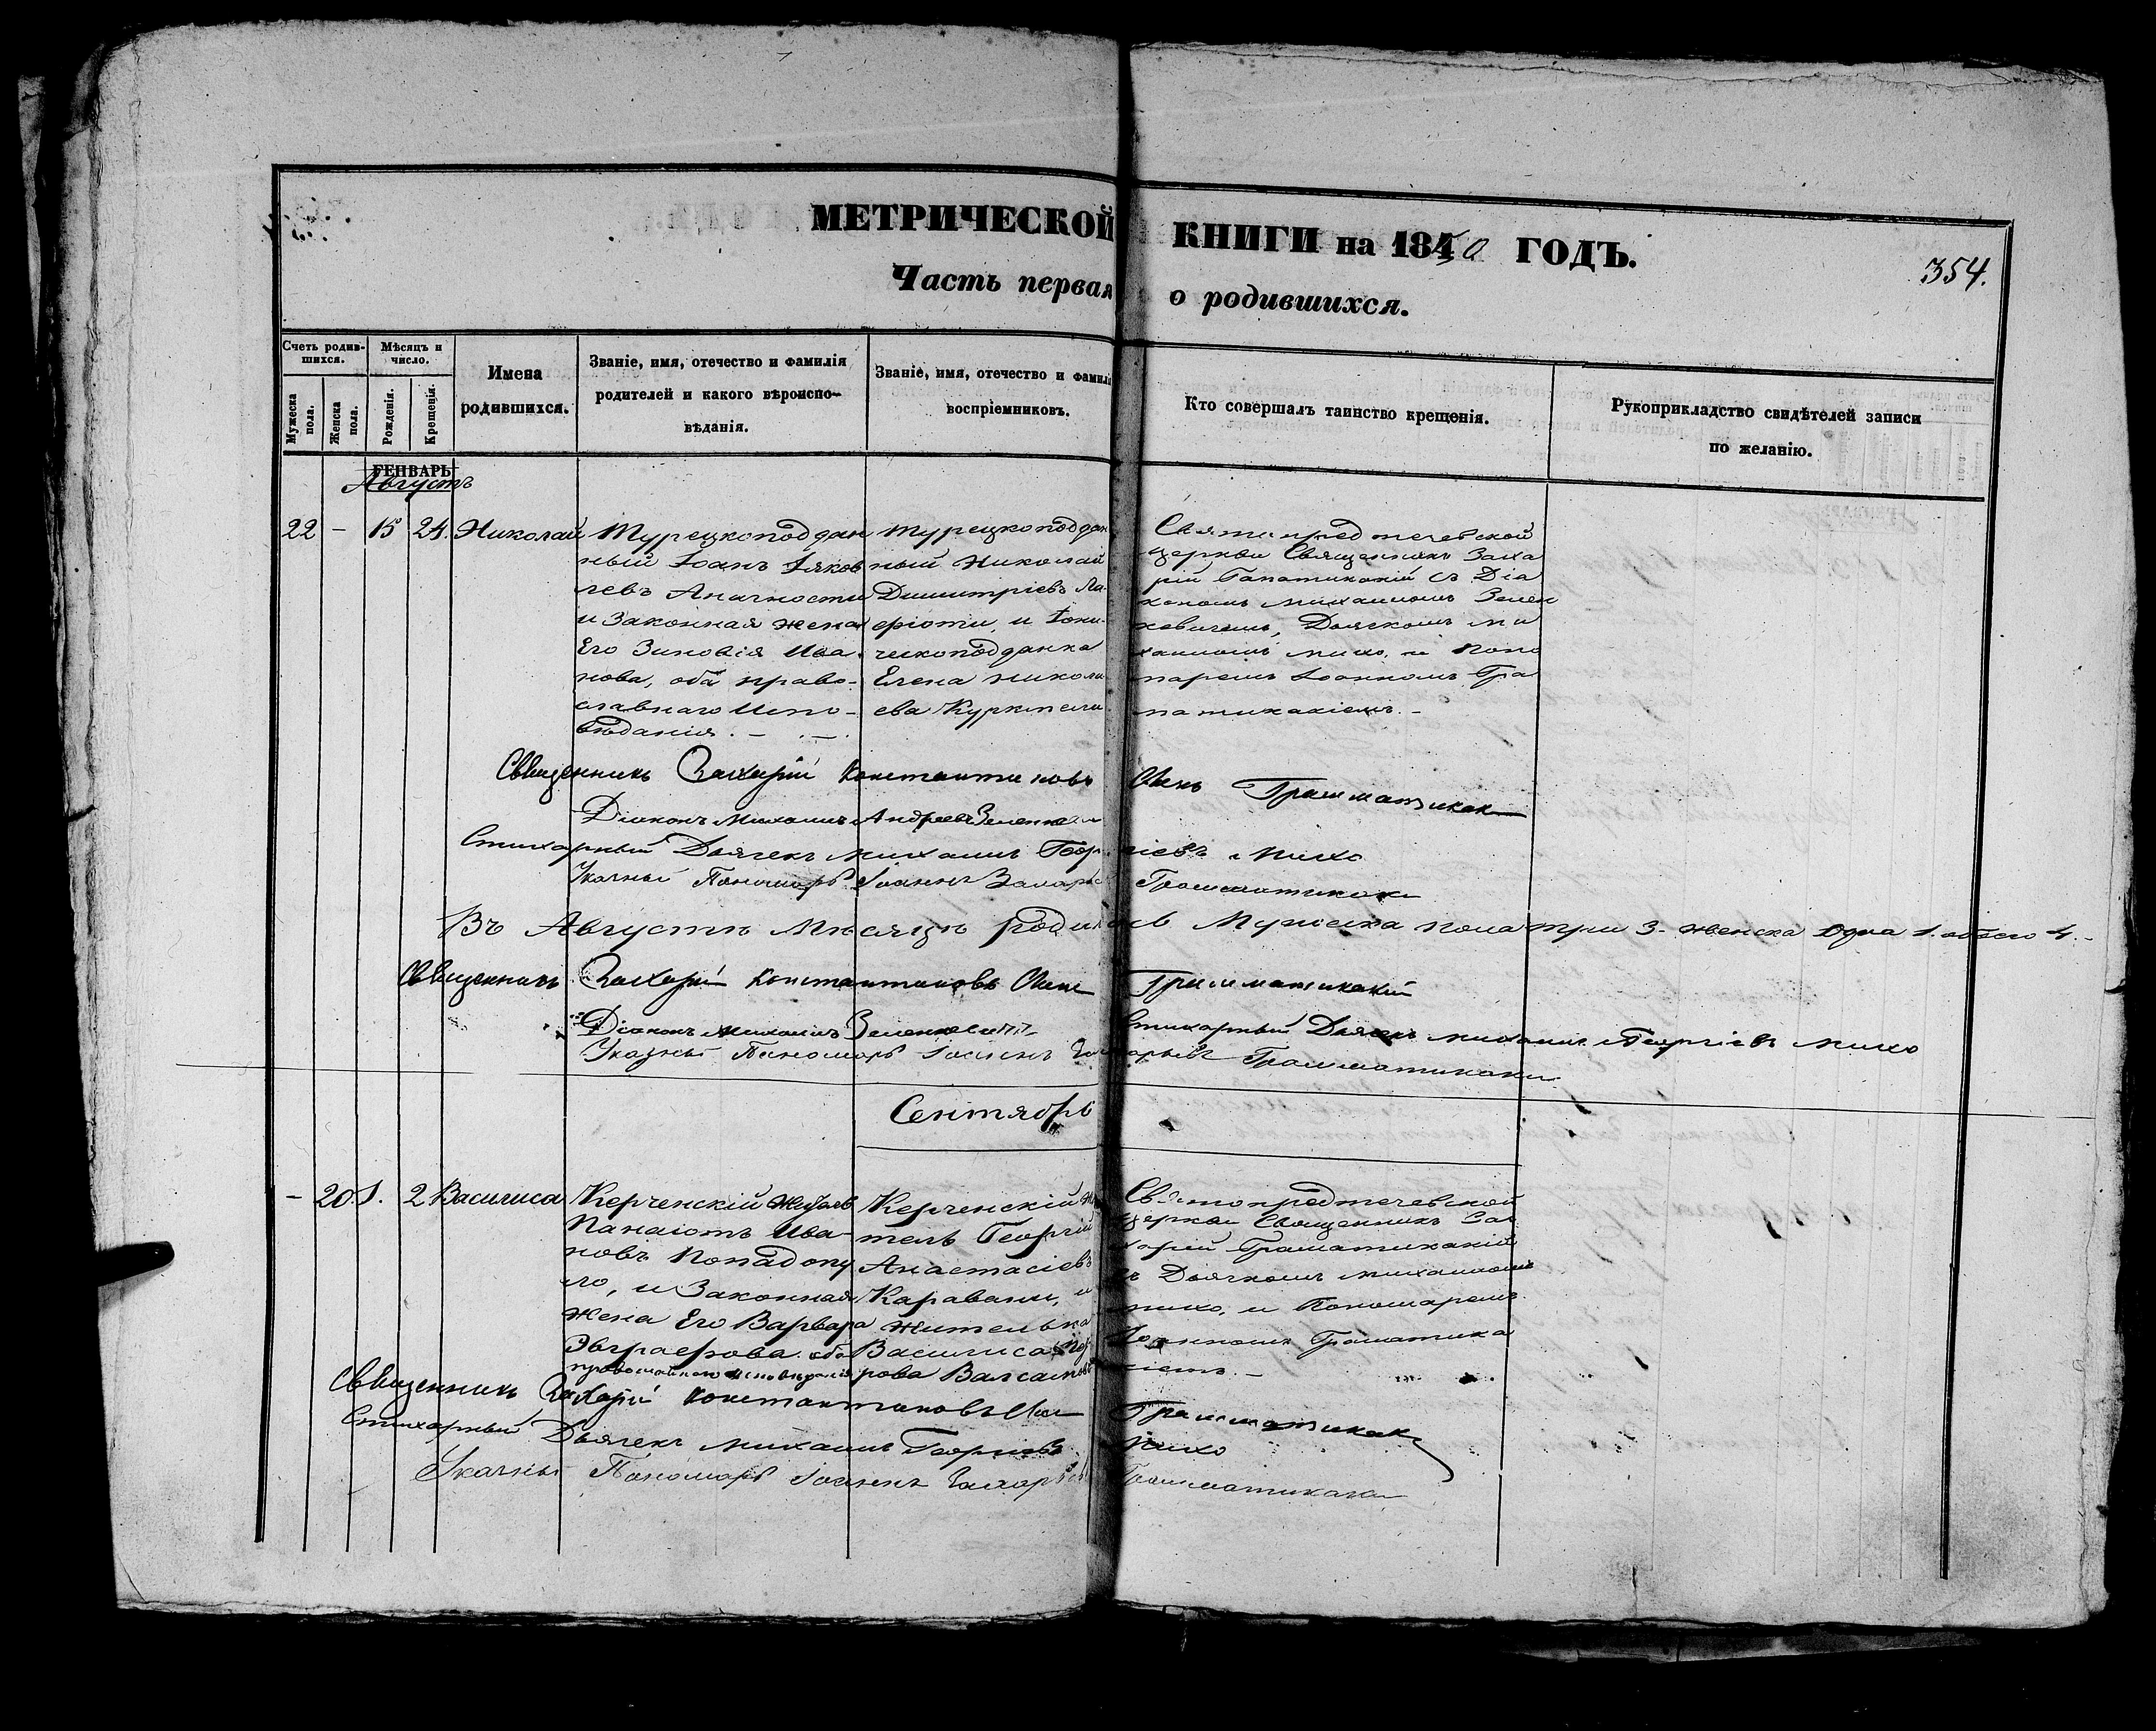 МЕТРИЧЕСКОЙ КНИГИ на 1850 ГОДЪ.
354.
Часть первая о родившихся.
Счетъ родив-
шихся.
Мужеска пола.
Женска пола.
Мѣсяцъ и
число.
Рожденія.
Крещенія.
Имена
родившихся.
Званіе, имя, отечество и фамилія
родителей и какого вѣроиспо-
вѣданія.
Званіе, имя, отечество и фамилі
воспріемниковъ.
Кто совершалъ таинство крещенія.
Рукоприкладство свидѣтелей записи
по желанію.
ГЕНВАРЬ
Августъ
22 - 15 24. Николай
Турецкоподдан
ный Іоанъ Іяков
левъ Анагности
и Законная жена
Его Зиновія Ива
нова, оба право-
славнаго Испо-
вѣданія. -
Турецкоподдан
ный Николай
Димитріевъ
и Іони-
ческоподданка
Елена Никола
ева
Святопредтечевской
Церкви Священникъ Заха
рій съ Діа
кономъ Михаиломъ Зелен
кевичемъ, Дьячкомъ Ми
хаиломъ Михо, и Поно
маремъ Іоанномъ Гра
матикакіемъ. -
Священникъ Захарій Константиновъ Сынъ Грамматикаки
Діаконъ Михаилъ Андреевъ Зеленкевич
Стихарный Дьячекъ Михаилъ Георгіевъ Михо
Указный Пономарь Іоаннъ Захарьев Грамматикаки
Въ Августѣ Мѣсяцѣ родилось Мужеска пола три 3. женска одна 1. обоего 4. -
Священникъ Захарій Константиновъ Сынъ Грамматикакій
Діаконъ Михаилъ Зеленкевич Стихарный Дьячекъ Михаилъ Георгіевъ Михо
Указный Пономарь Іоаннъ Захарьевъ Грамматикаки
Сентябрь
- 20. 1. 2 Василиса
Керченскій житель
Панаіотъ Ива-
новъ Попадопу
ло, и Законная
жена Его Варвара
Эвграфова. оба
православнаго исповѣданія
Керченскій жи
тель Георгій
Анастасіевъ
Каравани, и
жителька
Василиса
рова
Святопредтечевской
Церкви Священникъ За
харій Граматикакій
съ Дьячкомъ Михаиломъ
Михо, и Пономаремъ
Іоанномъ Граматика
кіемъ. -
Священникъ Захарій Константиновъ Сын Грамматикаки
Стихарный Дьячекъ Михаилъ Георгіевъ Михо
Указный Пономарь Іоаннъ Захарьев Грамматикаки